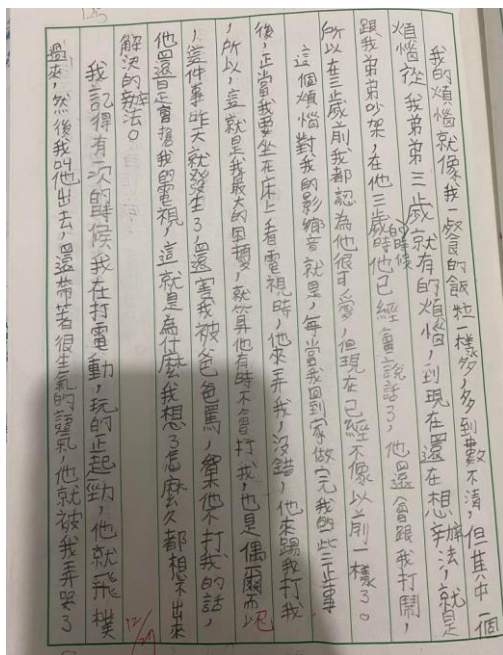 我的煩惱就像我一餐的飯粒一樣多,多到數不清,但其中一個
煩惱從我弟弟三歲就有的煩惱,到現在還在想辦法,就是
跟我弟弟吵架,在他三歲時的時候他已經會說話了,他還會跟我打鬧,
所以在三歲前我都認為他很可愛,但現在已經不像以前一樣了。
這個煩惱對我的影響音就是,每當我回到家做完我的些正事
後,正當我要坐在床上看電視時,他來弄我,沒錯,他來踢我打我
,所以,這就是我最大的困擾,就算他有時不會打我,也是偶爾而
,這件事昨天就發生了,還害我被爸爸罵,如果他不打我的話,
他還是會搶我的電視,這就是為什麼我想了怎麼久都想不出來
解決的辦法。
我記得有一次的時候我在打電動,玩的正起勁,他就飛撲
過來,然後我叫他出去,還帶著很生氣的語氣,他就被我弄哭了
12/29